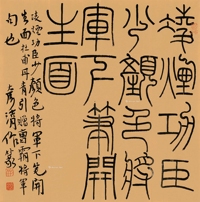 凌煙功臣
少顏色將
軍下筆開
生面
凌煙功臣少顏色將軍下筆開
生面杜甫丹青引贈曹霸將軍
句也
作篆